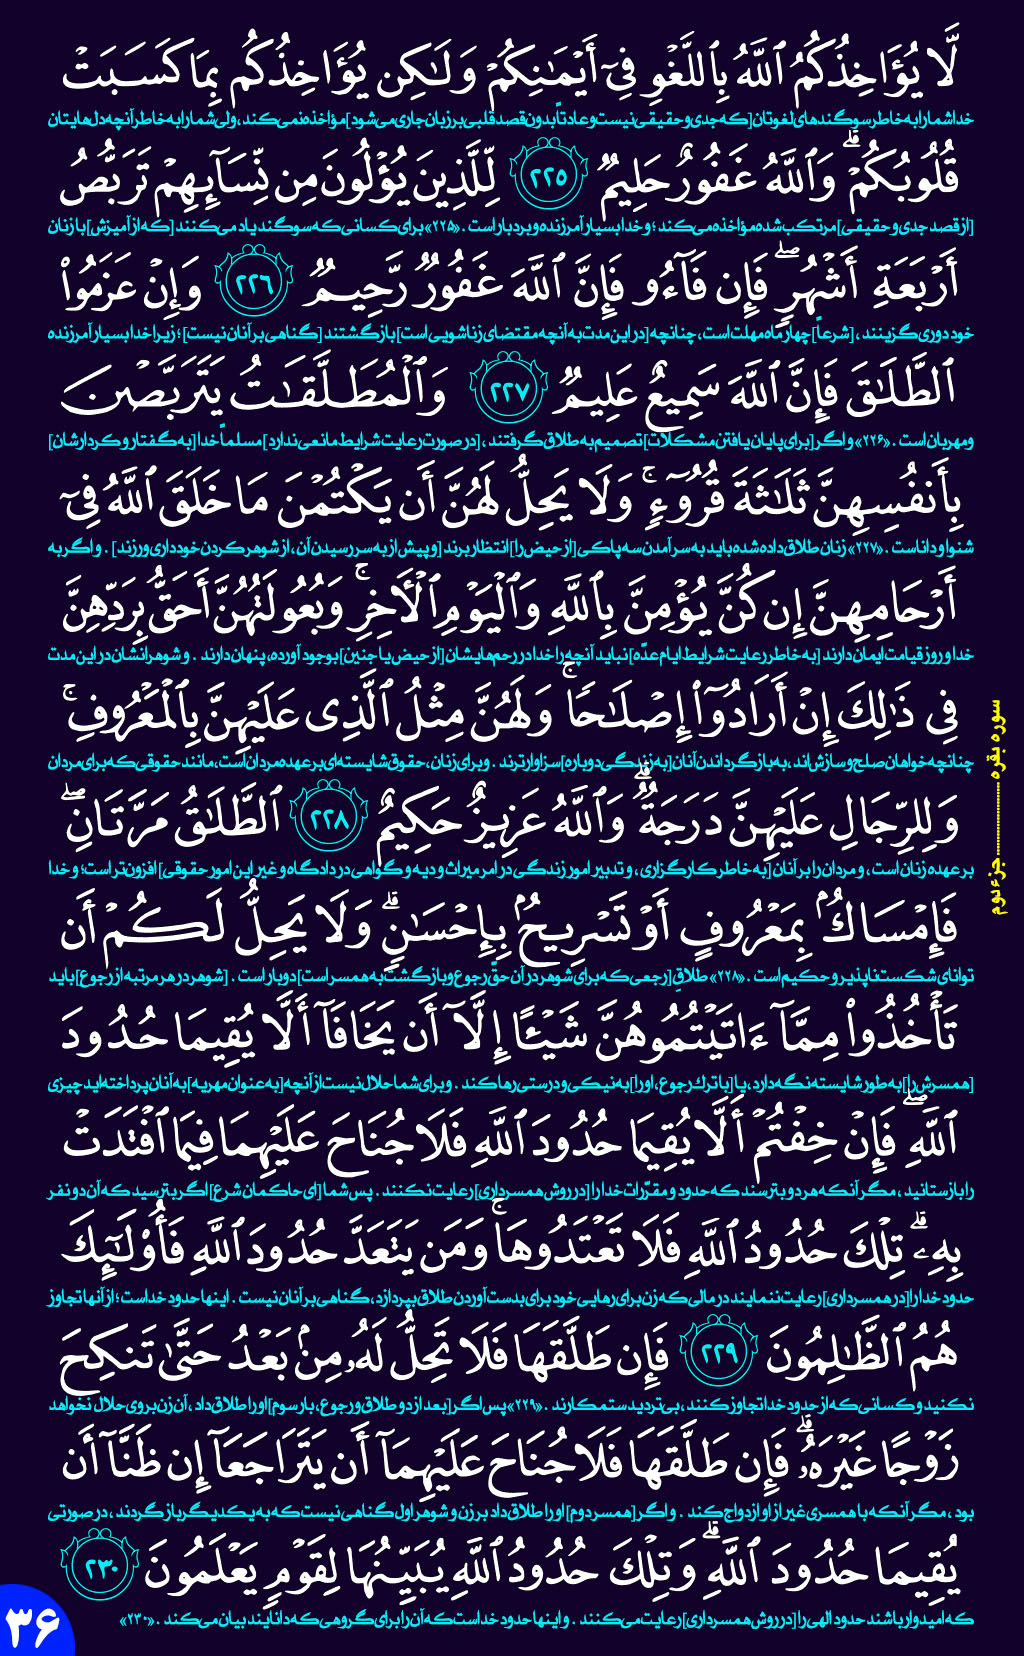 لَّا يُؤَاخِذُكُمُ ٱللَّهُ بِٱللَّغْوِ فِىٓ أَيْمَٰنِكُمْ وَلَٰكِن يُؤَاخِذُكُم بِمَا كَسَبَتْ
خدا شما را به خاطر سوگندهای لغوتان [که جدی و حقیقی نیست و عادتاً بدون قصد قلبی بر زبان جاری می‌شود] مؤاخذه نمی‌کند، ولی شما را به خاطر آنچه دل‌هایتان
قُلُوبُكُمْ ۗ وَٱللَّهُ غَفُورٌ حَلِيمٌ ٢٢٥ لِّلَّذِينَ يُؤْلُونَ مِن نِّسَآئِهِمْ تَرَبُّصُ
[از قصد جدی و حقیقی] مرتکب شده مؤاخذه می‌کند؛ و خدا بسیار آمرزنده و بردبار است. «۲۲۵» برای کسانی که سوگند یاد می‌کنند [که از آمیزش] با زنان
أَرْبَعَةِ أَشْهُرٍ ۖ فَإِن فَآءُو فَإِنَّ ٱللَّهَ غَفُورٌ رَّحِيمٌ ٢٢٦ وَإِنْ عَزَمُوا۟
خود دوری گزینند، [شرعاً] چهار ماه مهلت است، چنانچه [در این مدت به آنچه مقتضای زناشویی است] بازگشتند [گناهی بر آنان نیست]؛ زیرا خدا بسیار آمرزنده
ٱلطَّلَٰقَ فَإِنَّ ٱللَّهَ سَمِيعٌ عَلِيمٌ ٢٢٧ وَٱلْمُطَلَّقَٰتُ يَتَرَبَّصْنَ
و مهربان است. «۲۲۶» و اگر [برای پایان یافتن مشکلات] تصمیم به طلاق گرفتند، [در صورت رعایت شرایط مانعی ندارد] مسلماً خدا [به گفتار و کردارشان]
بِأَنفُسِهِنَّ ثَلَٰثَةَ قُرُوٓءٍ ۚ وَلَا يَحِلُّ لَهُنَّ أَن يَكْتُمْنَ مَا خَلَقَ ٱللَّهُ فِىٓ
شنوا و داناست. «۲۲۷» زنان طلاق داده شده باید به سر آمدن سه پاکی [از حیض را] انتظار برند [و پیش از به سر رسیدن آن، از شوهر کردن خودداری ورزند]. و اگر به
أَرْحَامِهِنَّ إِن كُنَّ يُؤْمِنَّ بِٱللَّهِ وَٱلْيَوْمِ ٱلْءَاخِرِ ۚ وَبُعُولَتُهُنَّ أَحَقُّ بِرَدِّهِنَّ
خدا و روز قیامت ایمان دارند [به خاطر رعایت شرایط ایام عدّه] نباید آنچه را خدا در رحم‌هایشان [از حیض یا جنین] بوجود آورده، پنهان دارند. و شوهرانشان در این مدت
فِى ذَٰلِكَ إِنْ أَرَادُوٓا۟ إِصْلَٰحًا ۚ وَلَهُنَّ مِثْلُ ٱلَّذِى عَلَيْهِنَّ بِٱلْمَعْرُوفِ ۚ
چنانچه خواهان صلح و سازش‌اند، به بازگرداندن آنان [به زندگی دوباره] سزاوارترند. و برای زنان، حقوق شایسته‌ای بر عهده مردان است، مانند حقوقی که برای مردان
وَلِلرِّجَالِ عَلَيْهِنَّ دَرَجَةٌ ۗ وَٱللَّهُ عَزِيزٌ حَكِيمٌ ٢٢٨ ٱلطَّلَٰقُ مَرَّتَانِ ۖ
بر عهده زنان است، و مردان را بر آنان [به خاطر کارگزاری، و تدبیر امور زندگی در امر میراث و دیه و گواهی در دادگاه و غیر این امور حقوقی] افزون‌تر است؛ و خدا
فَإِمْسَاكٌۢ بِمَعْرُوفٍ أَوْ تَسْرِيحٌۢ بِإِحْسَٰنٍ ۗ وَلَا يَحِلُّ لَكُمْ أَن
توانای شکست‌ناپذیر و حکیم است. «۲۲۸» طلاقِ [رجعی که برای شوهر در آن حقّ رجوع و بازگشت به همسر است] دو بار است. [شوهر در هر مرتبه از رجوع] باید
تَأْخُذُوا۟ مِمَّآ ءَاتَيْتُمُوهُنَّ شَيْـًٔا إِلَّآ أَن يَخَافَآ أَلَّا يُقِيمَا حُدُودَ
[همسرش را] به طور شایسته نگه دارد، یا [با ترک رجوع، او را] به نیکی و درستی رها کند. و برای شما حلال نیست از آنچه [به عنوان مهریه] به آنان پرداخته‌اید چیزی
ٱللَّهِ ۖ فَإِنْ خِفْتُمْ أَلَّا يُقِيمَا حُدُودَ ٱللَّهِ فَلَا جُنَاحَ عَلَيْهِمَا فِيمَا ٱفْتَدَتْ
را بازستانید، مگر آنکه هر دو بترسند که حدود و مقرّرات خدا را [در روش همسرداری] رعایت نکنند. پس شما [ای حاکمان شرع] اگر بترسید که آن دو نفر
بِهِۦ ۗ تِلْكَ حُدُودُ ٱللَّهِ فَلَا تَعْتَدُوهَا ۚ وَمَن يَتَعَدَّ حُدُودَ ٱللَّهِ فَأُو۟لَٰٓئِكَ
حدود خدا را [در همسرداری] رعایت ننمایند در مالی که زن برای رهایی خود برای بدست آوردن طلاق بپردازد، گناهی بر آنان نیست. اینها حدود خداست؛ از آنها تجاوز
هُمُ ٱلظَّٰلِمُونَ ٢٢٩ فَإِن طَلَّقَهَا فَلَا تَحِلُّ لَهُۥ مِنۢ بَعْدُ حَتَّىٰ تَنكِحَ
نکنید و کسانی که از حدود خدا تجاوز کنند، بی‌تردید ستمکارند. «۲۲۹» پس اگر [بعد از دو طلاق و رجوع، بار سوم] او را طلاق داد، آن زن بر وی حلال نخواهد
زَوْجًا غَيْرَهُۥ ۗ فَإِن طَلَّقَهَا فَلَا جُنَاحَ عَلَيْهِمَآ أَن يَتَرَاجَعَآ إِن ظَنَّآ أَن
بود، مگر آنکه با همسری غیر از او ازدواج کند. و اگر [همسر دوم] او را طلاق داد بر زن و شوهر اول گناهی نیست که به یکدیگر بازگردند، در صورتی
يُقِيمَا حُدُودَ ٱللَّهِ ۗ وَتِلْكَ حُدُودُ ٱللَّهِ يُبَيِّنُهَا لِقَوْمٍ يَعْلَمُونَ ٢٣٠
که امیدوار باشند حدود الهی را [در روش همسرداری] رعایت می‌کنند. و اینها حدود خداست که آن را برای گروهی که دانایند بیان می‌کند. «۲۳۰»
سوره بقره .................... جزء دوم
۳۶